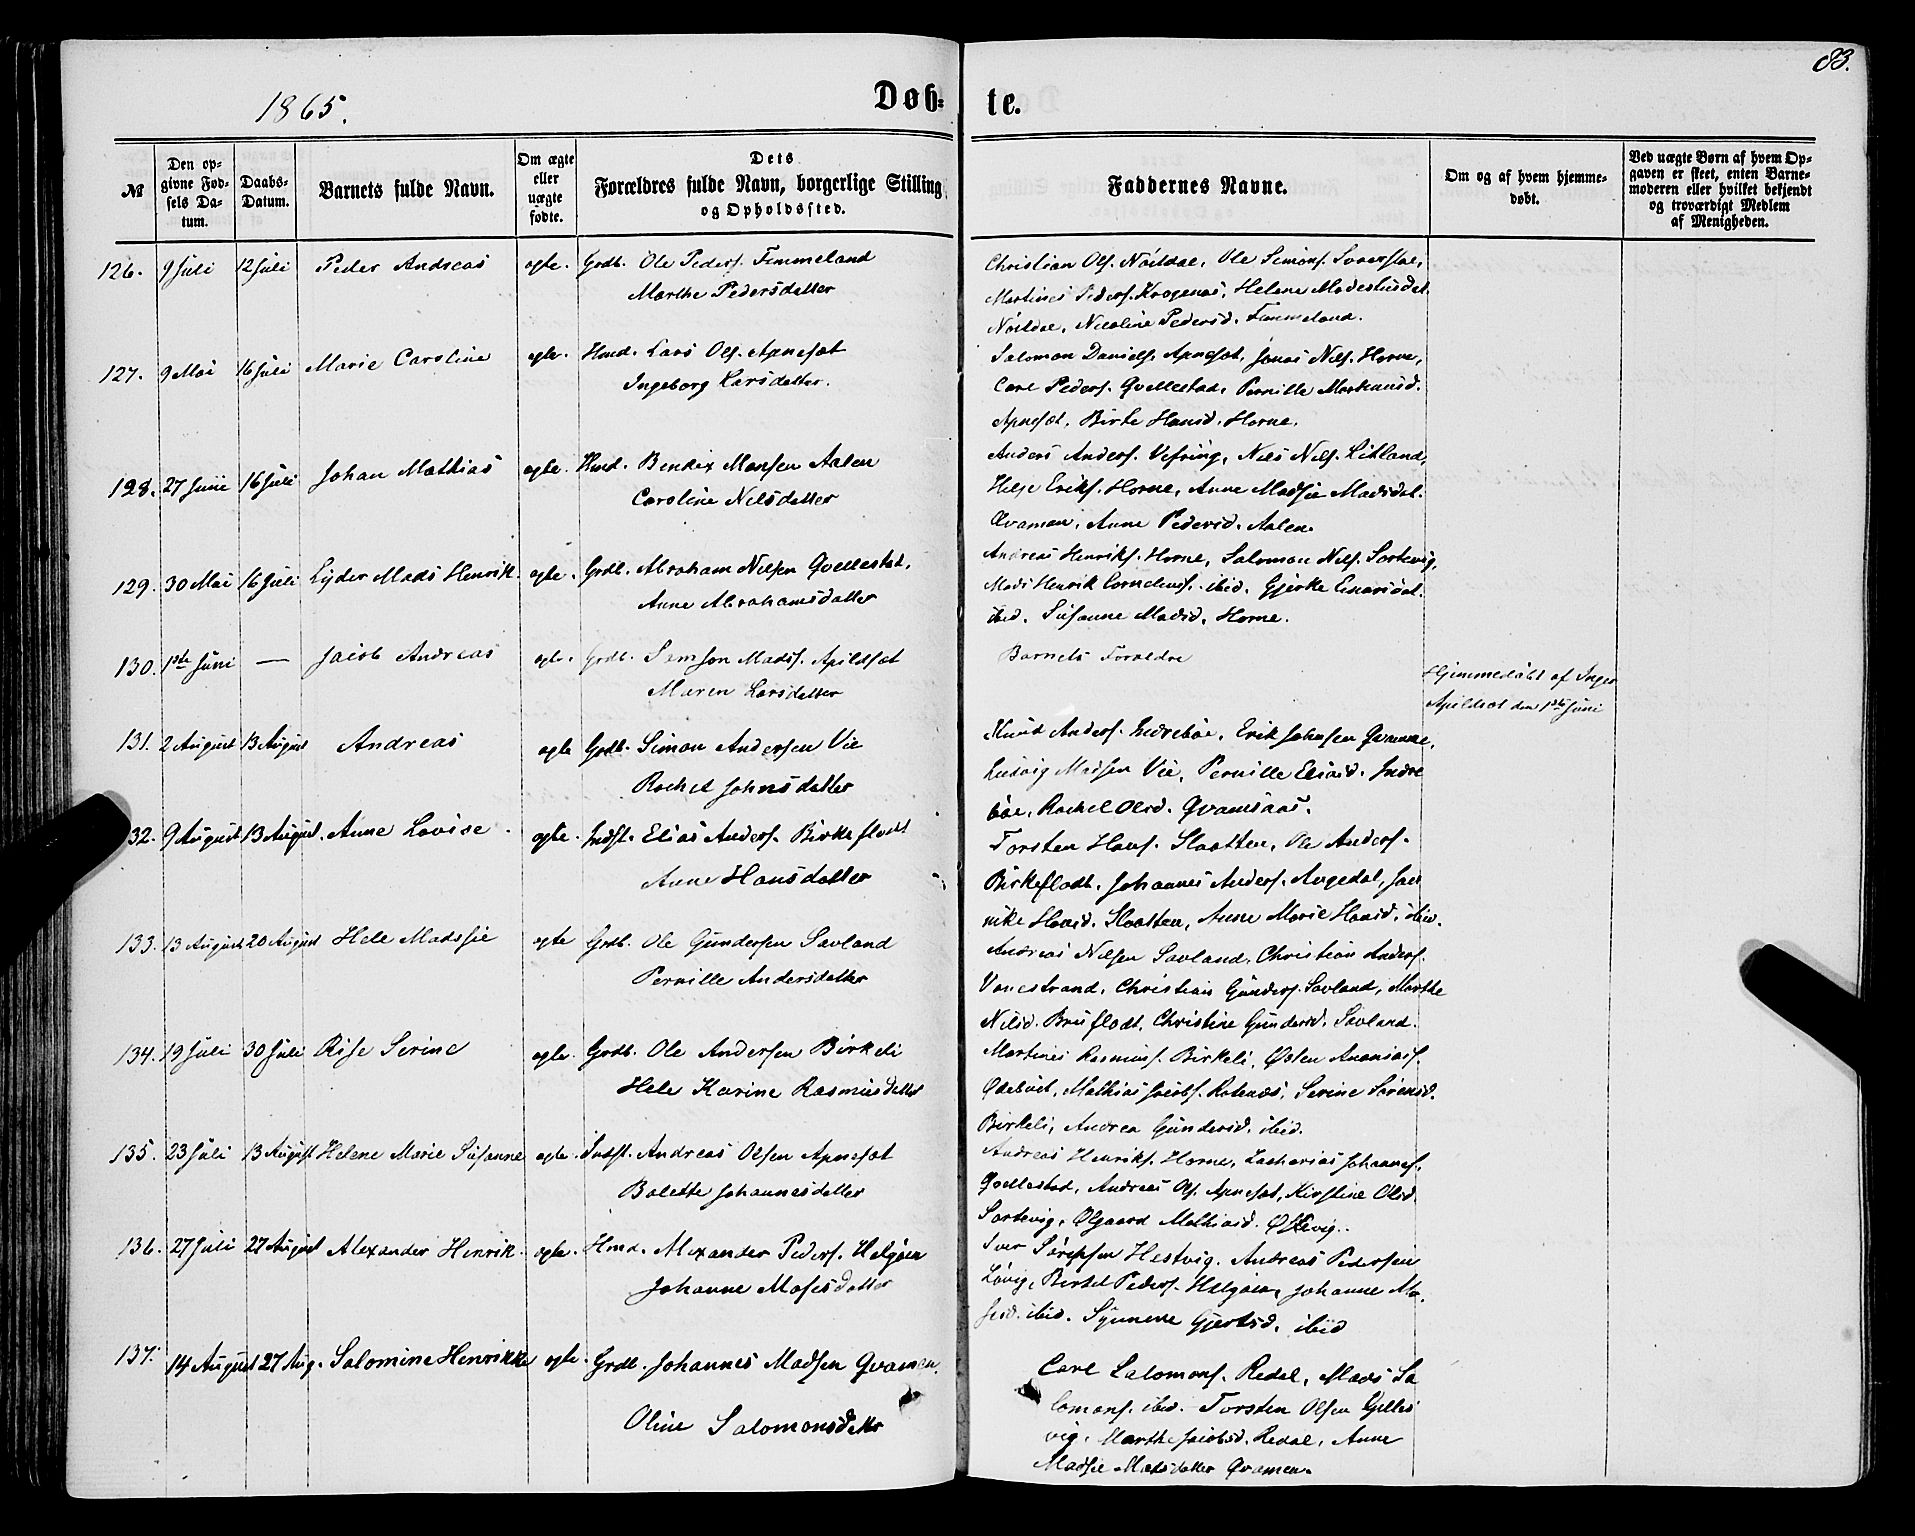 83.
1865.
Døb-
te.
№
Den op-
givne Fød-
sels Da-
tum.
Daabs-
Datum.
Barnets fulde Navn.
Om ægte
eller
uægte
fødte.
Dets
Forældres fulde Navn, borgerlige Stilling
og Opholdssted.
Faddernes Navne.
Om og af hvem hjemme-
døbt.
Ved uægte Børn af hvem Op-
gaven er skeet, enten Barne-
moderen eller hvilket bekjendt
og troværdigt Medlem
af Menigheden.
126. 9 Juli 12 Juli Peder Andreas ægte. Grdb. Ole Peders. Timmeland
Marthe Pedersdatter
Christian Ols. Ole Simons.
Martines Peders. Helene
Nicoline Pedersd. Timmeland.
127. 9 Mai 16 Juli Marie Caroline ægte. Hmd. Lars Ols. Apnesæt
Ingeborg Larsdatter.
Salomon Daniels. Apnesæt, Jonas Nils. Horne,
Carl Peders. Qvellestad, Pernille
Apnesæt, Birte Hansd. Horne.
128. 27 Juni 16 Juli Johan Mathias ægte. Hmd. Bendix Monsen Aalen
Caroline Nilsdatter
Anders Anders. Vefring, Nils Nils. Litland,
Helje Eriks. Horne, Anne Madsie Madsdat.
Qvamen, Anne Pedersd. Aalen.
129. 30 Mai 16 Juli Lyder Mads Henrik. ægte. Grdb. Abraham Nilsen Qvellestad,
Anne Abrahamsdatter
Andreas Henriks. Horne, Salomon Nils. Sortevig,
Mads Henrik Cornelius. ibid. Gjerke
ibid. Susanne Madsd. Horne.
130. 1ste Juni — Jacob Andreas ægte. Grdb. Samson Mads. Apildsæt
Maren Larsdatter
Barnets Forældre
Hjemmedøbt af Inger
Apildsæt den 1ste Juni
131. 2 August 13 August Andreas ægte Grdb. Simon Andersen Vie
Rachel Johnsdatter
Knud Anders. Indrebøe, Erik Johnsen Qvamme,
Ludvig Madsen Vie, Pernille Eliasd. Indre
bøe, Rachel Olsd. Qvamsaas.
32. 9 August 13 August. Anne Lovise. ægte. Indst. Elias Anders. Birkeflodt
Anne Hansdatter
Torsten Hans. Slaatten, Ole Anders.
Birkeflodt. Johannes Anders. Angedal, Jan
nike Hansd. Slaatten, Anne Marie Hansd. ibid.
133. 13 August 20 August Hele Madssie ægte Grdb. Ole Gundersen Savland
Pernille Andersdatter
Andreas Nilsen Savland, Christian Anders.
Vonestrand, Christian Gunders. Savland, Marthe
Nilsd. Bruflodt, Christine Gundersd. Savland.
134. 19 Juli 30 Juli Rise Serine ægte. Grdb. Ole Andersen Birkeli
Hele Karine Rasmusdatter
Martines Rasmuss. Birkeli, Østen Ananias.
Mathias Jacobs. Serine Sørensd.
Birkeli, Andrea Gundersd. ibid.
135. 23 Juli 13 August Helene Marie Susanne ægte. Indst. Andreas Olsen Apnesæt
Bolette Johannesdatter
Andreas Henriks. Horne, Zacharias Johannes.
Qvellestad, Andreas Ols. Apnesæt, Kirstine Olsd.
Sortevig, Olgaard Mathiasd.
136. 27 Juli 27 August Alexander Henrik. ægte. Hmd. Alexander Peders. Helgøen
Johanne Mosesdatter
Iver Hestvig. Andreas Pedersen
Løvig, Bertel Peders. Helgøen, Johanne Mo-
sesd. ibid. Synneve Gjertsd. ibid
137. 14 August 27 Aug. Salomine Henrikke ægte. Grdb. Johannes Madsen Qvamen.
Oline Salomonsdatter
Carl Salomons. Redal, Mads Sa
lomons. ibid. Torsten Olsen Gilles
vig, Marthe Jacobsd. Redal, Anne
Madsie Madsdatter Qvamen.